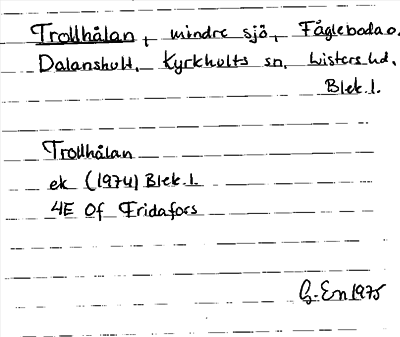 Trollhålan, mindre sjö, Fågleboda o.
Dalanshult, Kyrkhults sn, Listers hd,
Blek. l.
Trollhålan
ek (1974) Blek. l.
4E 0f Fridafors
G. En 1975